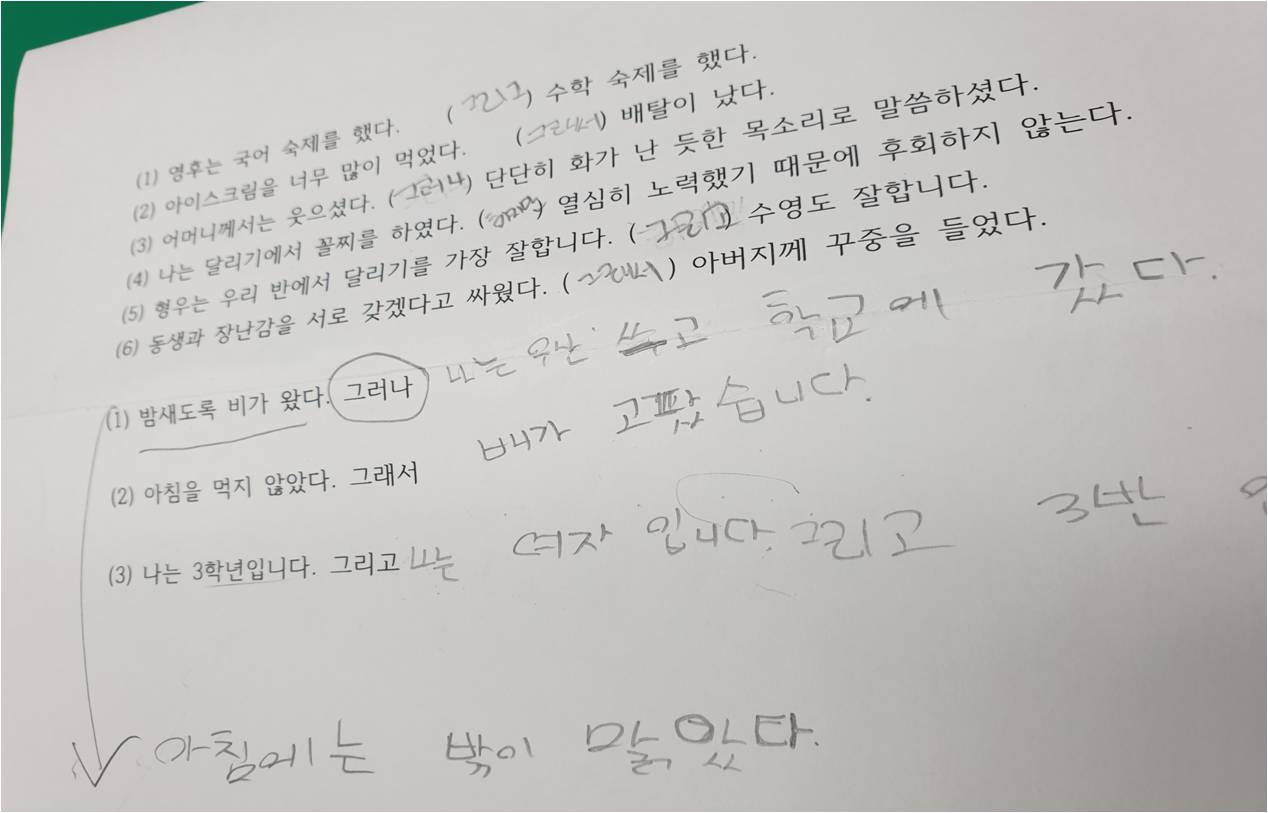 (1) 영후는 국어 숙제를 했다. (그리고) 수학 숙제를 했다.
(2) 아이스크림을 너무 많이 먹었다. (그래서) 배탈이 났다.
(3) 어머니께서는 웃으셨다. (그러나) 단단히 화가 난 듯한 목소리로 말씀하셨다.
(4) 나는 달리기에서 꼴찌를 하였다. ( ) 열심히 노력했기 때문에 후회하지 않는다.
(5) 형우는 우리 반에서 달리기를 가장 잘합니다. (그리고) 수영도 잘합니다.
(6) 동생과 장난감을 서로 갖겠다고 싸웠다. (그래서) 아버지께 꾸중을 들었다.
(1) 밤새도록 비가 왔다. 그러나 나는 우산 쓰고 학교에 갔다.
(2) 아침을 먹지 않았다. 그래서 배가 고팠습니다.
(3) 나는 3학년입니다. 그리고 나는 여자 입니다. 그리고 3반
아침에는 밖이 맑았다.